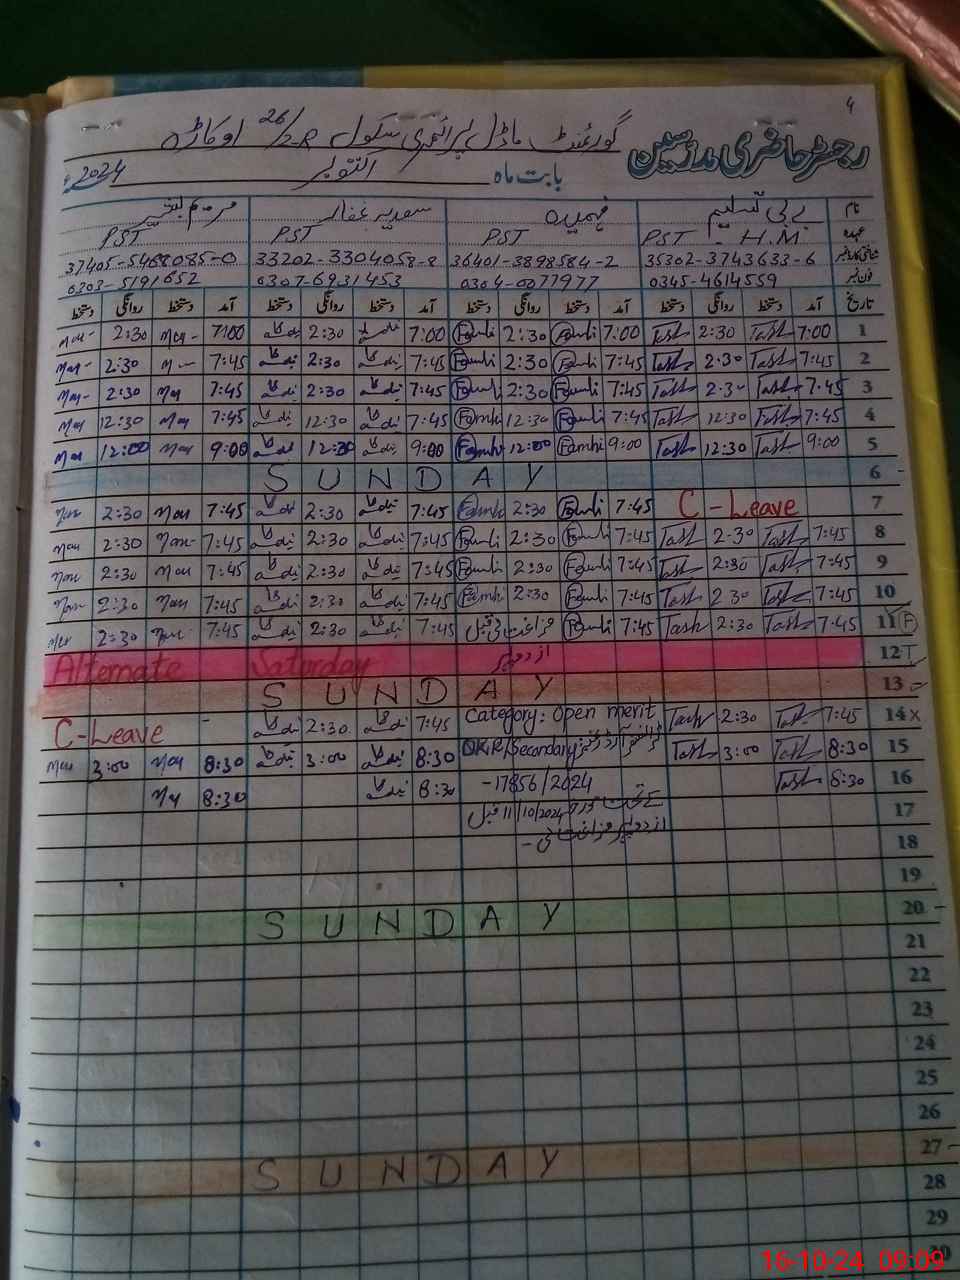 ۴
رجسٹر حاضری مدرسین گورنمنٹ ماڈل پرائمری سکول 26/2-R اوکاڑہ
بابت ماہ اکتوبر 2024ء
نام بی بی تسلیم فہمیدہ سعدیہ غفار مریم بشیر
عہدہ PST H.M PST PST PST
شناختی کارڈ نمبر 35302-3743633-6 36401-3898584-2 33202-3304058-8 37405-5468085-0
فون نمبر 0345-4614559 0304-0077977 0307-6931453 0303-5191652
تاریخ آمد دستخط روانگی دستخط آمد دستخط روانگی دستخط آمد دستخط روانگی دستخط آمد دستخط روانگی دستخط
1 7:00 Tash 2:30 Tash 7:00 2:30 7:00 2:30 7:00 Mar 2:30 Mar
2 7:45 Tash 2:30 Tash 7:45 2:30 7:45 2:30 7:45 2:30 Mar
3 7:45 Tash 2:30 Tash 7:45 2:30 7:45 2:30 7:45 Mar 2:30 Mar
4 7:45 Tash 12:30 Tash 7:45 12:30 7:45 12:30 7:45 Mar 12:30 Mar
5 9:00 Tash 12:30 Tash 9:00 12:00 9:00 12:30 9:00 Mar 12:00 Mar
SUNDAY 6
7 C-Leave 7:45 2:30 7:45 2:30 7:45 Mar 2:30 Mar
8 7:45 Tash 2:30 Tash 7:45 2:30 7:45 2:30 7:45 Mar 2:30 Mar
9 7:45 Tash 2:30 Tash 7:45 2:30 7:45 2:30 7:45 Mar 2:30 Mar
10 7:45 Tash 2:30 Tash 7:45 2:30 7:45 2:30 7:45 Mar 2:30 Mar
11 F 7:45 Tash 2:30 Tash 7:45 فراغت قبل 7:45 2:30 7:45 Mar 2:30 Mar
Alternate Saturday از دوپہر 12
SUNDAY 13
14 7:45 Tash 2:30 Tash Category: Open merit 7:45 2:30 C-Leave
15 8:30 Tash 3:00 Tash OKR/Secondary 8:30 3:00 8:30 Mar 3:00 Mar
16 8:30 Tash -17856/2024 8:30 8:30 Mar
17 کے تحت 11/10/2024 قبل
18 از دوپہر فراغت کی -
19
SUNDAY 20
21
22
23
24
25
26
SUNDAY 27
28
29
30
16-10-24 09:09